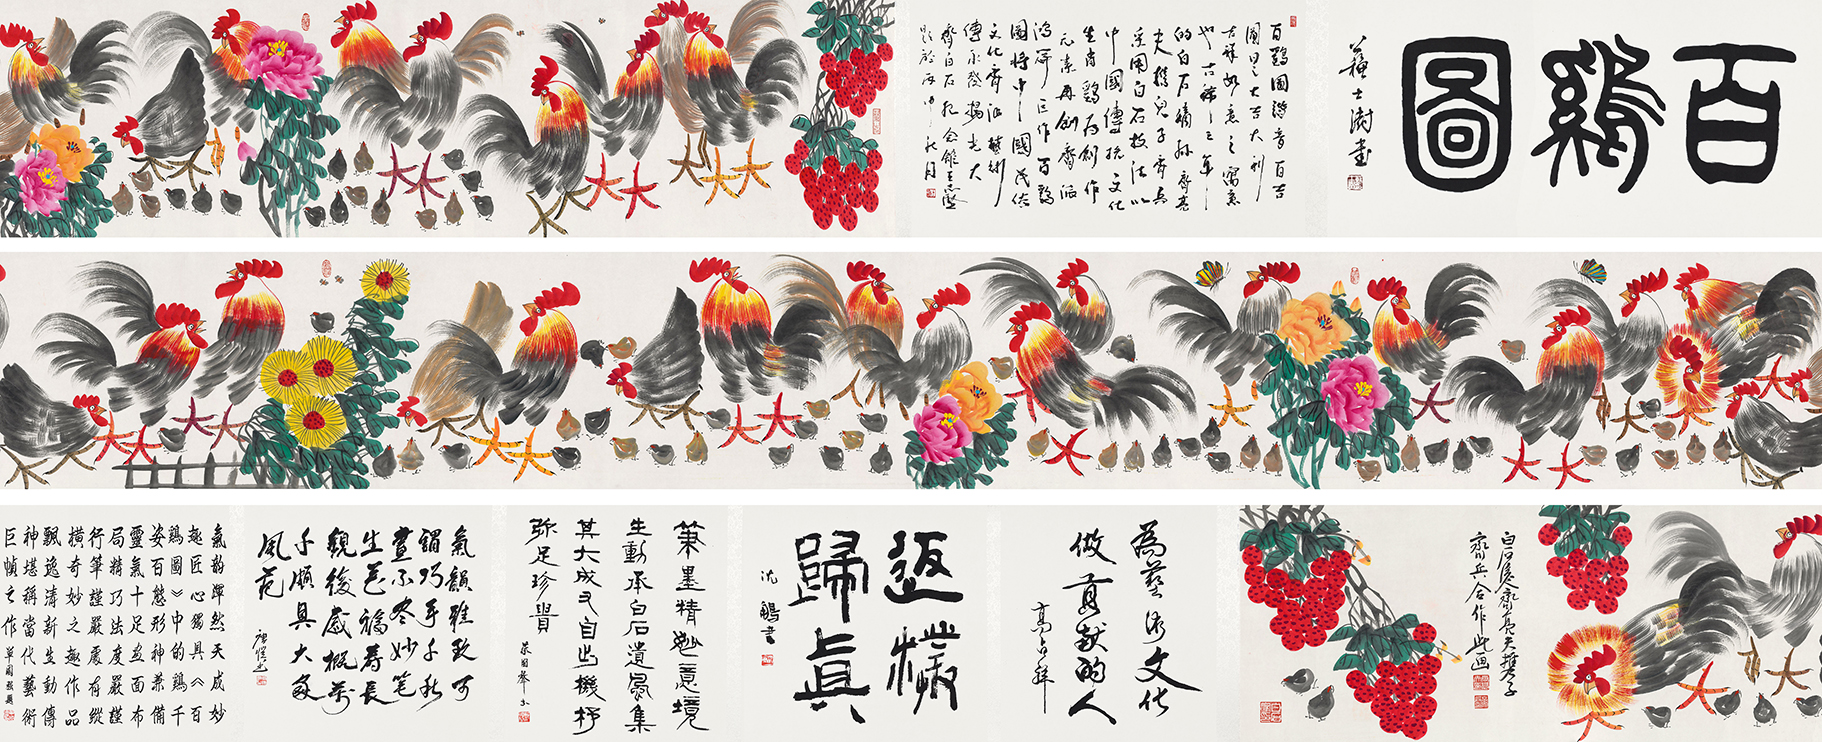 百鷄圖
蘇士澍書
百鷄圖諧音百吉
圖曰之大吉大利
吉祥如意之寓意
也古稀之年
的白石嫡孫齊亮
夫携兒子齊兵
采用白石技法以
中國傳統文化
生肖鷄為創作
元素再創齊派
鴻篇巨作百鷄
圖將中國民俗
文化齊派藝術
傳承發揚光大
齊白石紀念館王志堅
題於丙申秋月
白石後裔齊亮夫携子
齊兵合作此画
為藝術文化
做貢獻的人
高占祥
返樸
歸真
沈鵬書
筆墨精妙意境
生動承白石遺風集
其大成又自出機杼
弥足珍貴
蔡國聲書
氣韻雅致可
謂巧手千秋
畫不尽妙笔
生花福壽長
觀後感概萬
千頗具大家
風范
氣韵渾然天成妙
趣匠心獨具《百
鷄圖》中的鷄千
姿百態形神兼備
靈氣十足画面布
局精巧法度嚴謹
行筆謹嚴處有縱
橫奇妙之趣作品
飄逸清新生動傳
神堪稱當代藝術
巨幀之作
單國強題